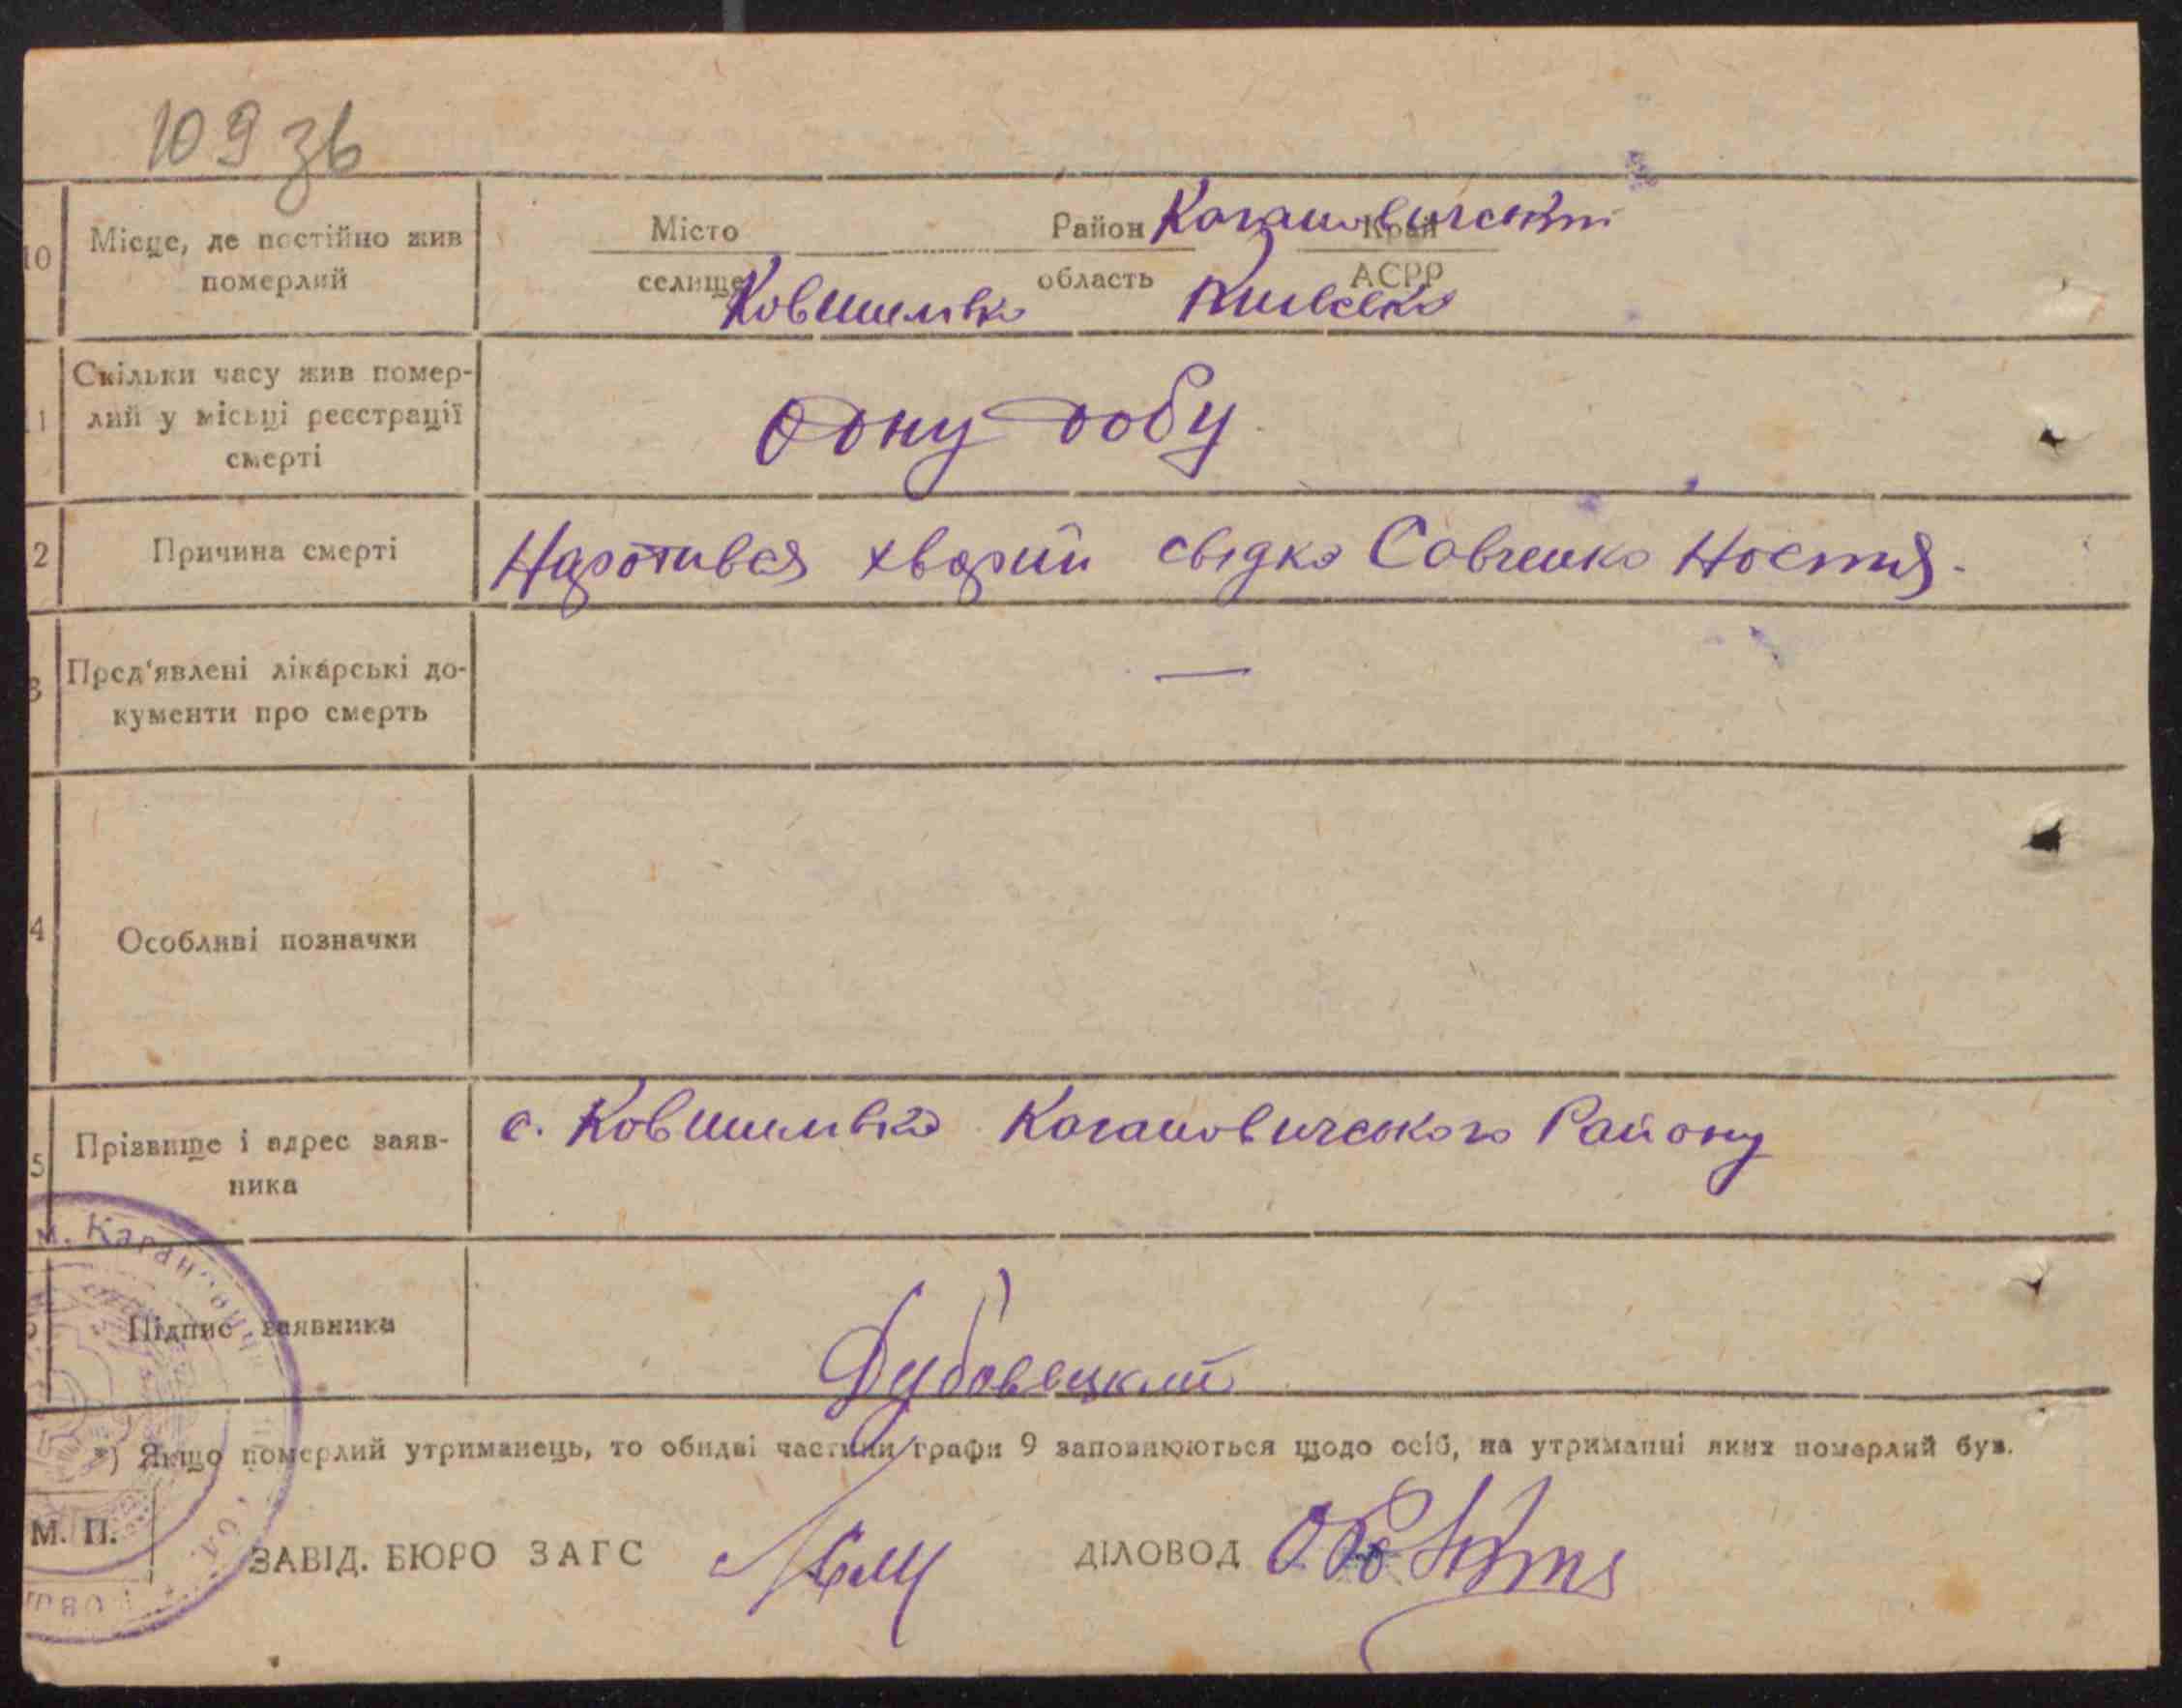 109 зв
10 Місце, де постійно жив померлий
Місто Район Кагановичський Край
селище Ковшилівка область Київська АСРР
1 Скільки часу жив помер-
лий у місьці реєстрації
смерті
одну добу
2 Причина смерті
Наротився хворий свідка Савченко Настя.
3 Пред'явлені лікарські до-
кументи про смерть
—
4 Особливі позначки
5 Прізвище і адрес заяв-
ника
с. Ковшилівка Кагановичського Району
м. Каганович
Підпис заявника
Дубовецкий
*) Якщо померлий утриманець, то обидві частини графи 9 заповнюються щодо осіб, на утриманні яких померлий був.
М. П.
ЗАВІД. БЮРО ЗАГС ДІЛОВОД